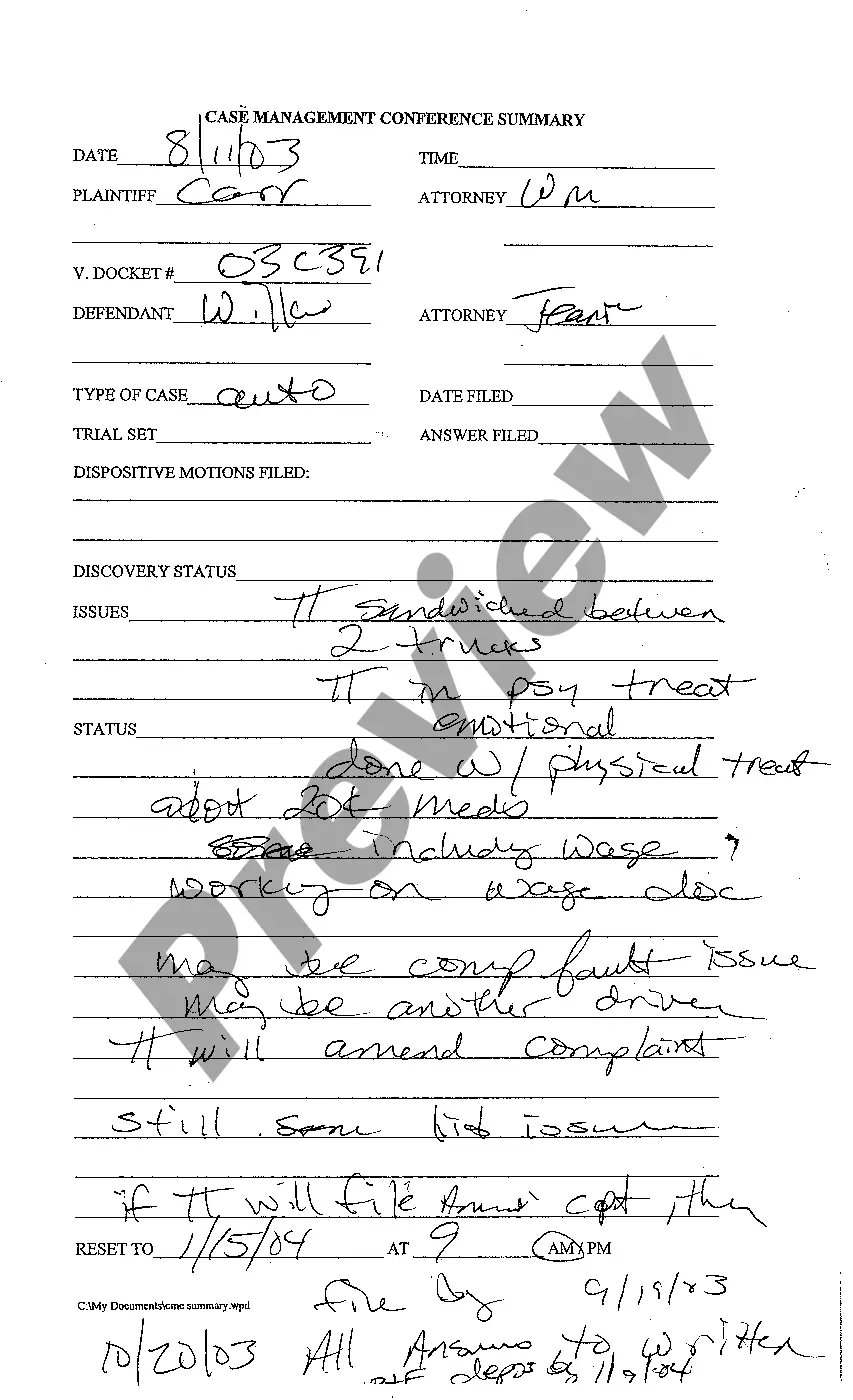 CASE MANAGEMENT CONFERENCE SUMMARY
DATE 8/11/03 TIME
PLAINTIFF Carr ATTORNEY Wm
V. DOCKET # 03C391
DEFENDANT ATTORNEY
TYPE OF CASE auto DATE FILED
TRIAL SET ANSWER FILED
DISPOSITIVE MOTIONS FILED:
DISCOVERY STATUS
ISSUES π sandwiched between
2 trucks
π in psy treat
STATUS emotional
done w/ physical treat
about 20k meds
includy wage ?
working on wage doc
may be comp fault issue
may be another driver
π will amend complaint
still some liab issue
if π will file cpt, then
RESET TO 1/15/04 AT 9 AM PM
file by 9/19/03
C:\My Documents\cmc summary.wpd
10/20/03 All Answers to written
depos by 1/9/04
Preview